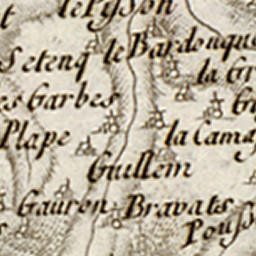 le Pyson
Seteng
le Bardouque
la Gr
es Garbes
Plape
la Cama
Guillem
Gauren
Bravats
Pouss